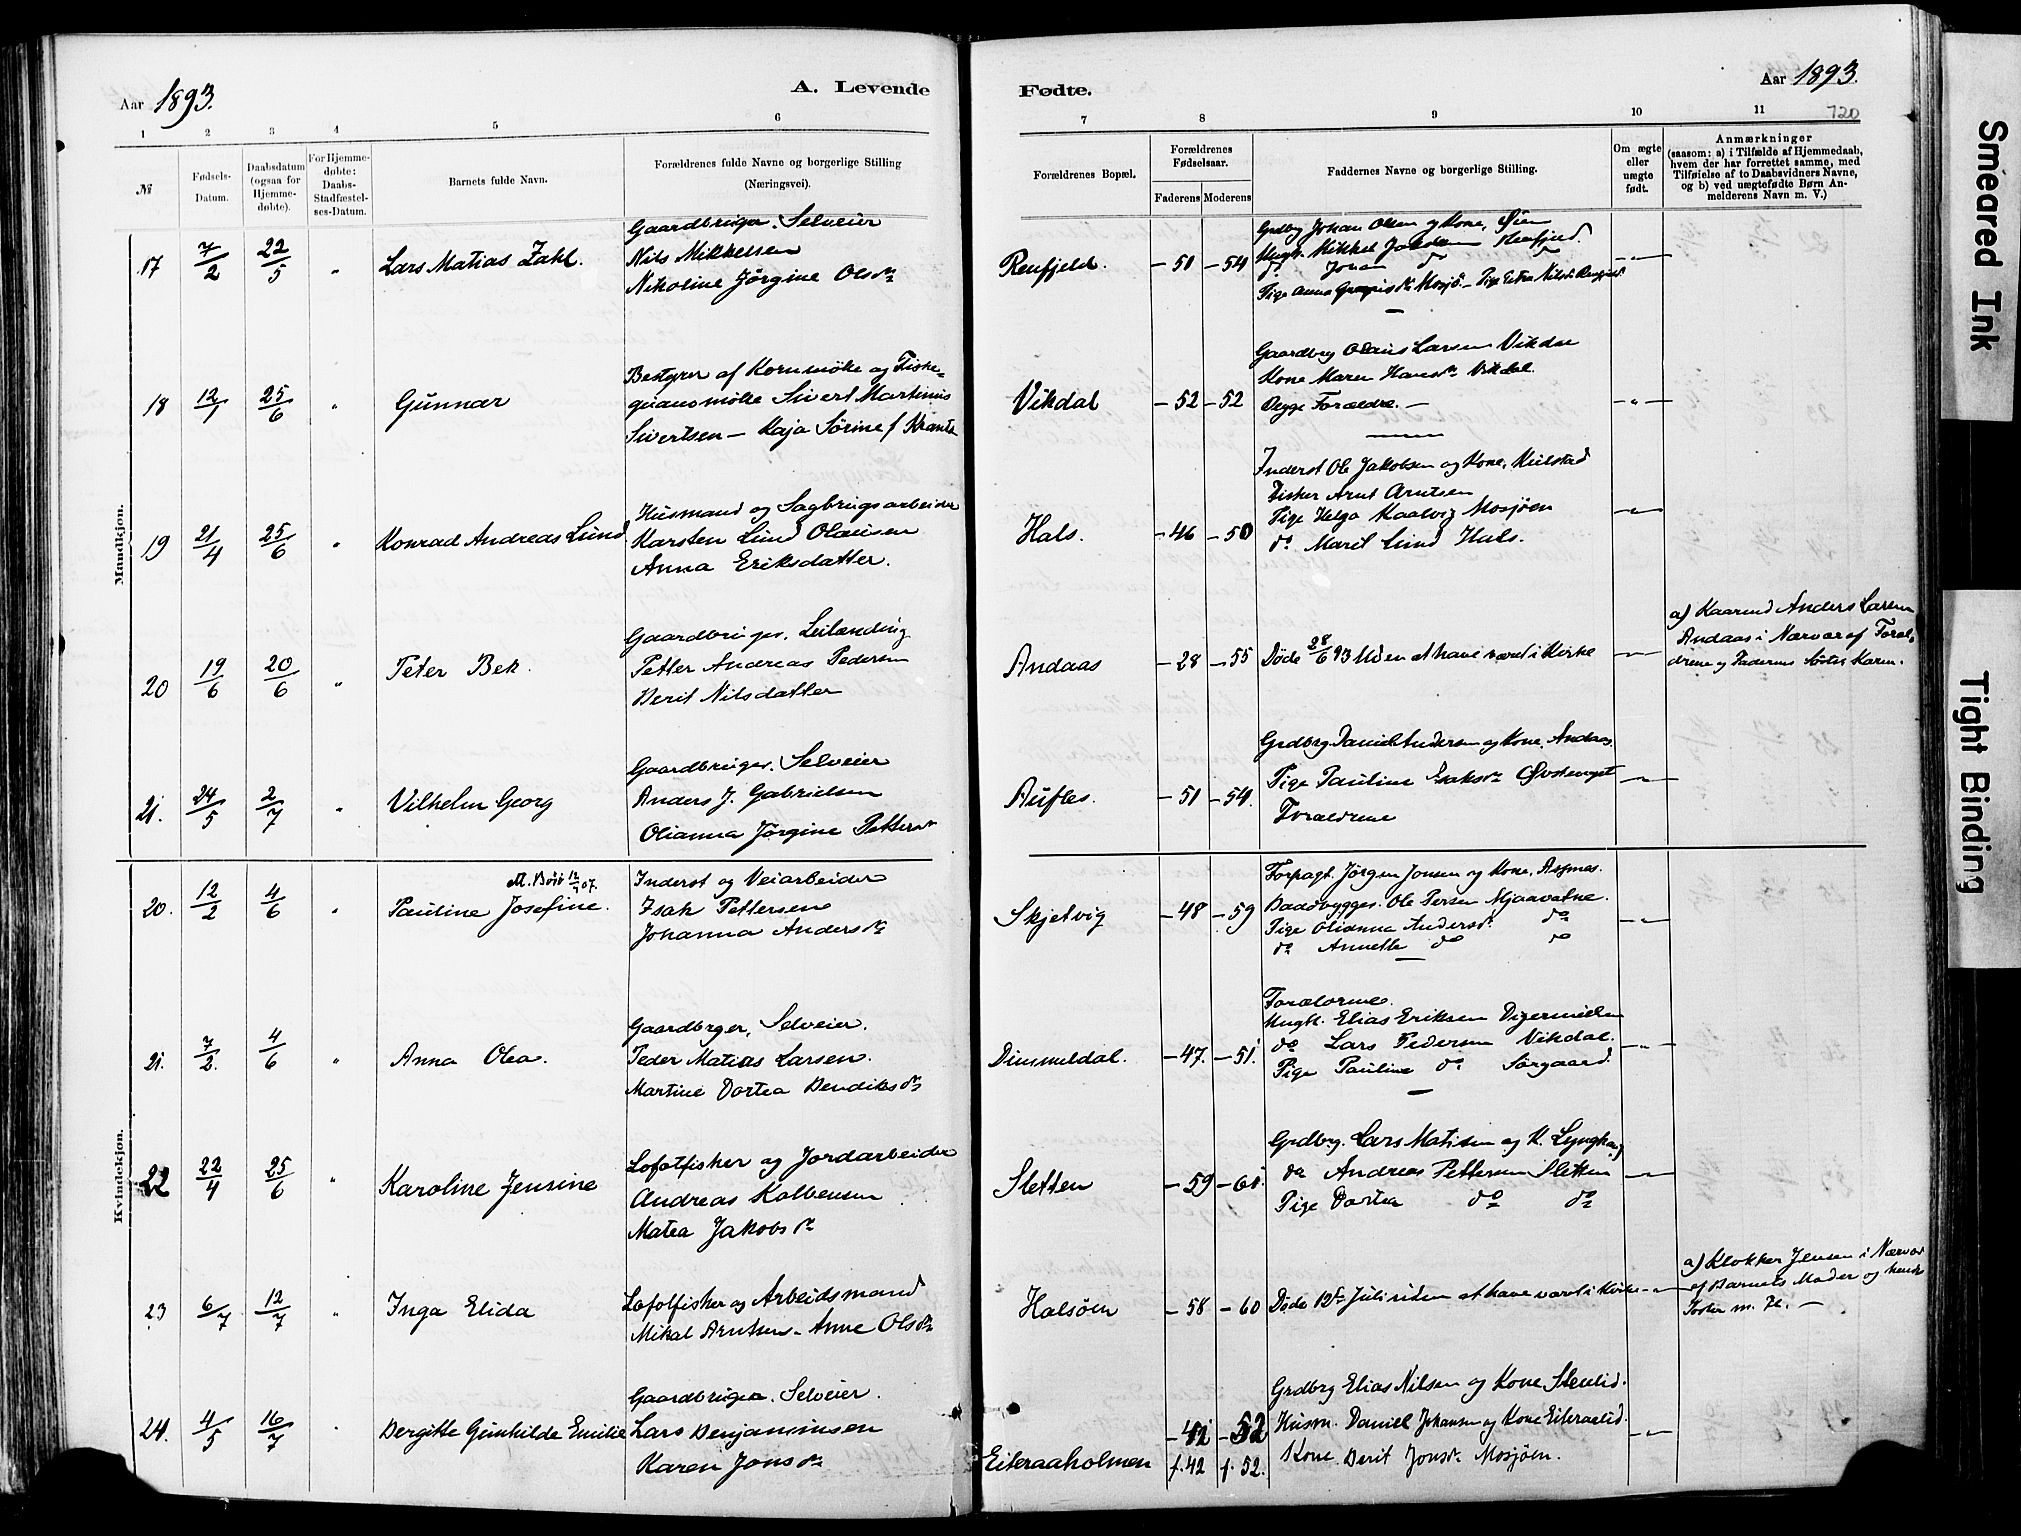 Aar 1893.
A. Levende
Fødte.
Aar 1893.
720
1 2 3 4 5 6 7 8 9 10 11
№
Fødsels-
Datum.
Daabsdatum
(ogsaa for
Hjemme-
døbte).
For Hjemme-
døbte:
Daabs-
Stadfæstel-
ses-Datum.
Barnets fulde Navn.
Forældrenes fulde Navne og borgerlige Stilling
(Næringsvei).
Forældrenes Bopæl.
Forældrenes
Fødselsaar.
Faderens Moderens
Faddernes Navne og borgerlige Stilling.
Om ægte
eller
uægte
født.
Anmærkninger
(saasom: a) i Tilfælde af Hjemmedaab,
hvem der har forrettet samme, med
Tilføielse af to Daabsvidners Navne,
og b) ved uægtefødte Børn An-
melderens Navn m. V.)
Mandkjøn.
17 7/2 22/5 " Lars Matias Zahl.
Gaardbruger. Selveier
Nils Mikkelsen
Nikoline Jørgine Olsdr
Renfjeld. - 51 - 54
Grdbrg Johan Olsen og Kone, Øien
Ungk. Mikkel Jakobsen Renfjeld.
do Johan do do
Tige Anna Mosjø. - Pige Petra Nilsd. Renfjeld
-"-
18 12/1 25/6 " Gunnar
Bestyrer af Kornmølle og Fiske=
guanomølle Sivert Martinus
Sivertsen - Kaja Sørine f. Krantz
Vikdal - 52 - 52
Gaardbrg Olaus Larsen Vikdal
Kone Maren Hansdr Vikdal.
Begge Forældre. -
-"-
19 21/4 25/6 " Konrad Andreas Lund
Husmand og Sagbrugsarbeider
Karsten Lund Olausen
Anna Eriksdatter.
Hals. - 46 - 50
Inderst Ole Jakobsen og Kone, Kulstad
Fisker Arnt Arntsen
Pige Helga Kaalvig Mosjøen
do Marit Lund Hals.
-"-
20 19/6 20/6 " Peter Bek.
Gaardbruger. Leilending
Petter Andreas Pedersen
Berit Nilsdatter
Andaas - 28 - 55
Døde 28/6 93 uden at have været i Kirke
-"-
a) Kaarmd Anders Larsen
Andaas i Nærvær af Foræl-
drene og Faderens Søster Karen.
21. 24/5 2/7 " Vilhelm Georg
Gaardbruger. Selveier
Anders J. Gabrielsen
Olianna Jørgine Pettersdr
Aufles. - 51 - 54.
Grdbrg. Daniel Andersen og Kone, Andaas.
Pige Pauline Esaksdr Øvstenget
Forældrene
-"-
Kvindekjøn.
20. 12/2 4/6 "
Pauline Josefine.
Inderst og Veiarbeider
Isak Pettersen
Johanna Andersdr
Skjetvig - 48 - 59
Forpagt. Jørgen Jonsen og Kone, Aspnes.
Baadbygger. Ole Persen Mjaavatne.
Pige Olianna Andersd. do
do Annette do do
-"-
21. 7/2. 4/6 " Anna Olea.
Gaardbrger. Selveier.
Peder Matias Larsen.
Martine Dortea Bendiksdr
Dimmeldal. - 47. - 51.
Forældrene.
Ungk. Elias Eriksen Digermulen
do Lars Pedersen Vikdal.
Pige Pauline do Sørgaard.
-"-
22 22/4 25/6 " Karoline Jensine
Lofotfisker og Jordarbeider
Andreas Kolbensen
Matea Jakobsdr
Sletten - 59 - 61.
Grdbrg. Lars Matisen og K. Lynghaug
do Andreas Pettersen Sletten
Pige Dortea do do
-"-
23 6/7 12/7 " Inga Elida
Lofotfisker og Arbeidsmand
Mikal Arntsen - Anne Olsdr
Halsøen - 58 - 60
Døde 12te Juli uden at have været i Kirke
-"-
a) Klokker Jensen i Nærvær
af Barnets Moder og hendes
Søster m. Fl. -
24. 4/5 16/7 " Bergitte Gunhilde Emilie
Gaardbruger. Selveier.
Lars Benjaminsen
Karen Jonsdr
Eiteraaholmen - 42 - 52
f. 42 f. 52.
Grdbrg Elias Nilsen og Kone Stenlid.
Husm. Daniel Johansen og Kone Eiteraalid.
Kone Berit Jonsdr Mosjøen.
-"-
Smeared Ink
Tight Binding